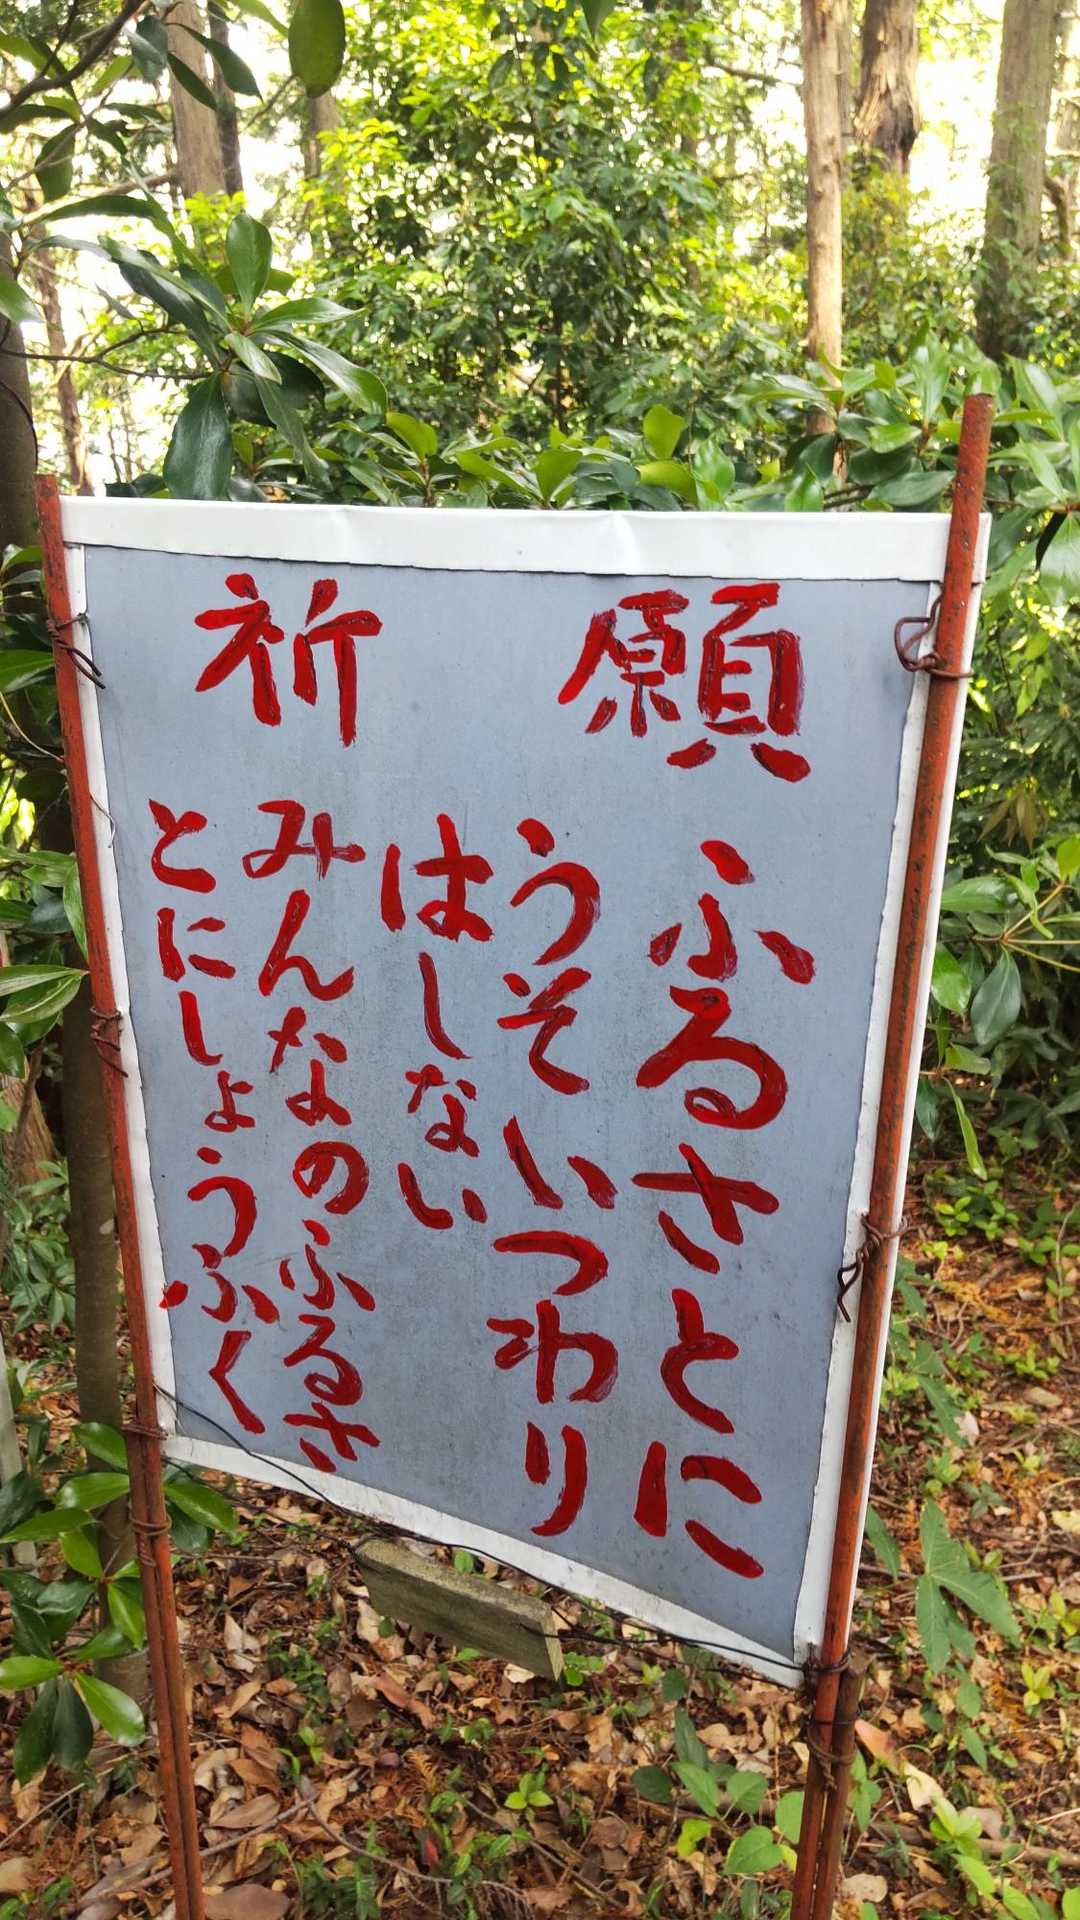 祈願
ふるさとに
うそいつわり
はしない
みんなのふるさ
とにしょうふく